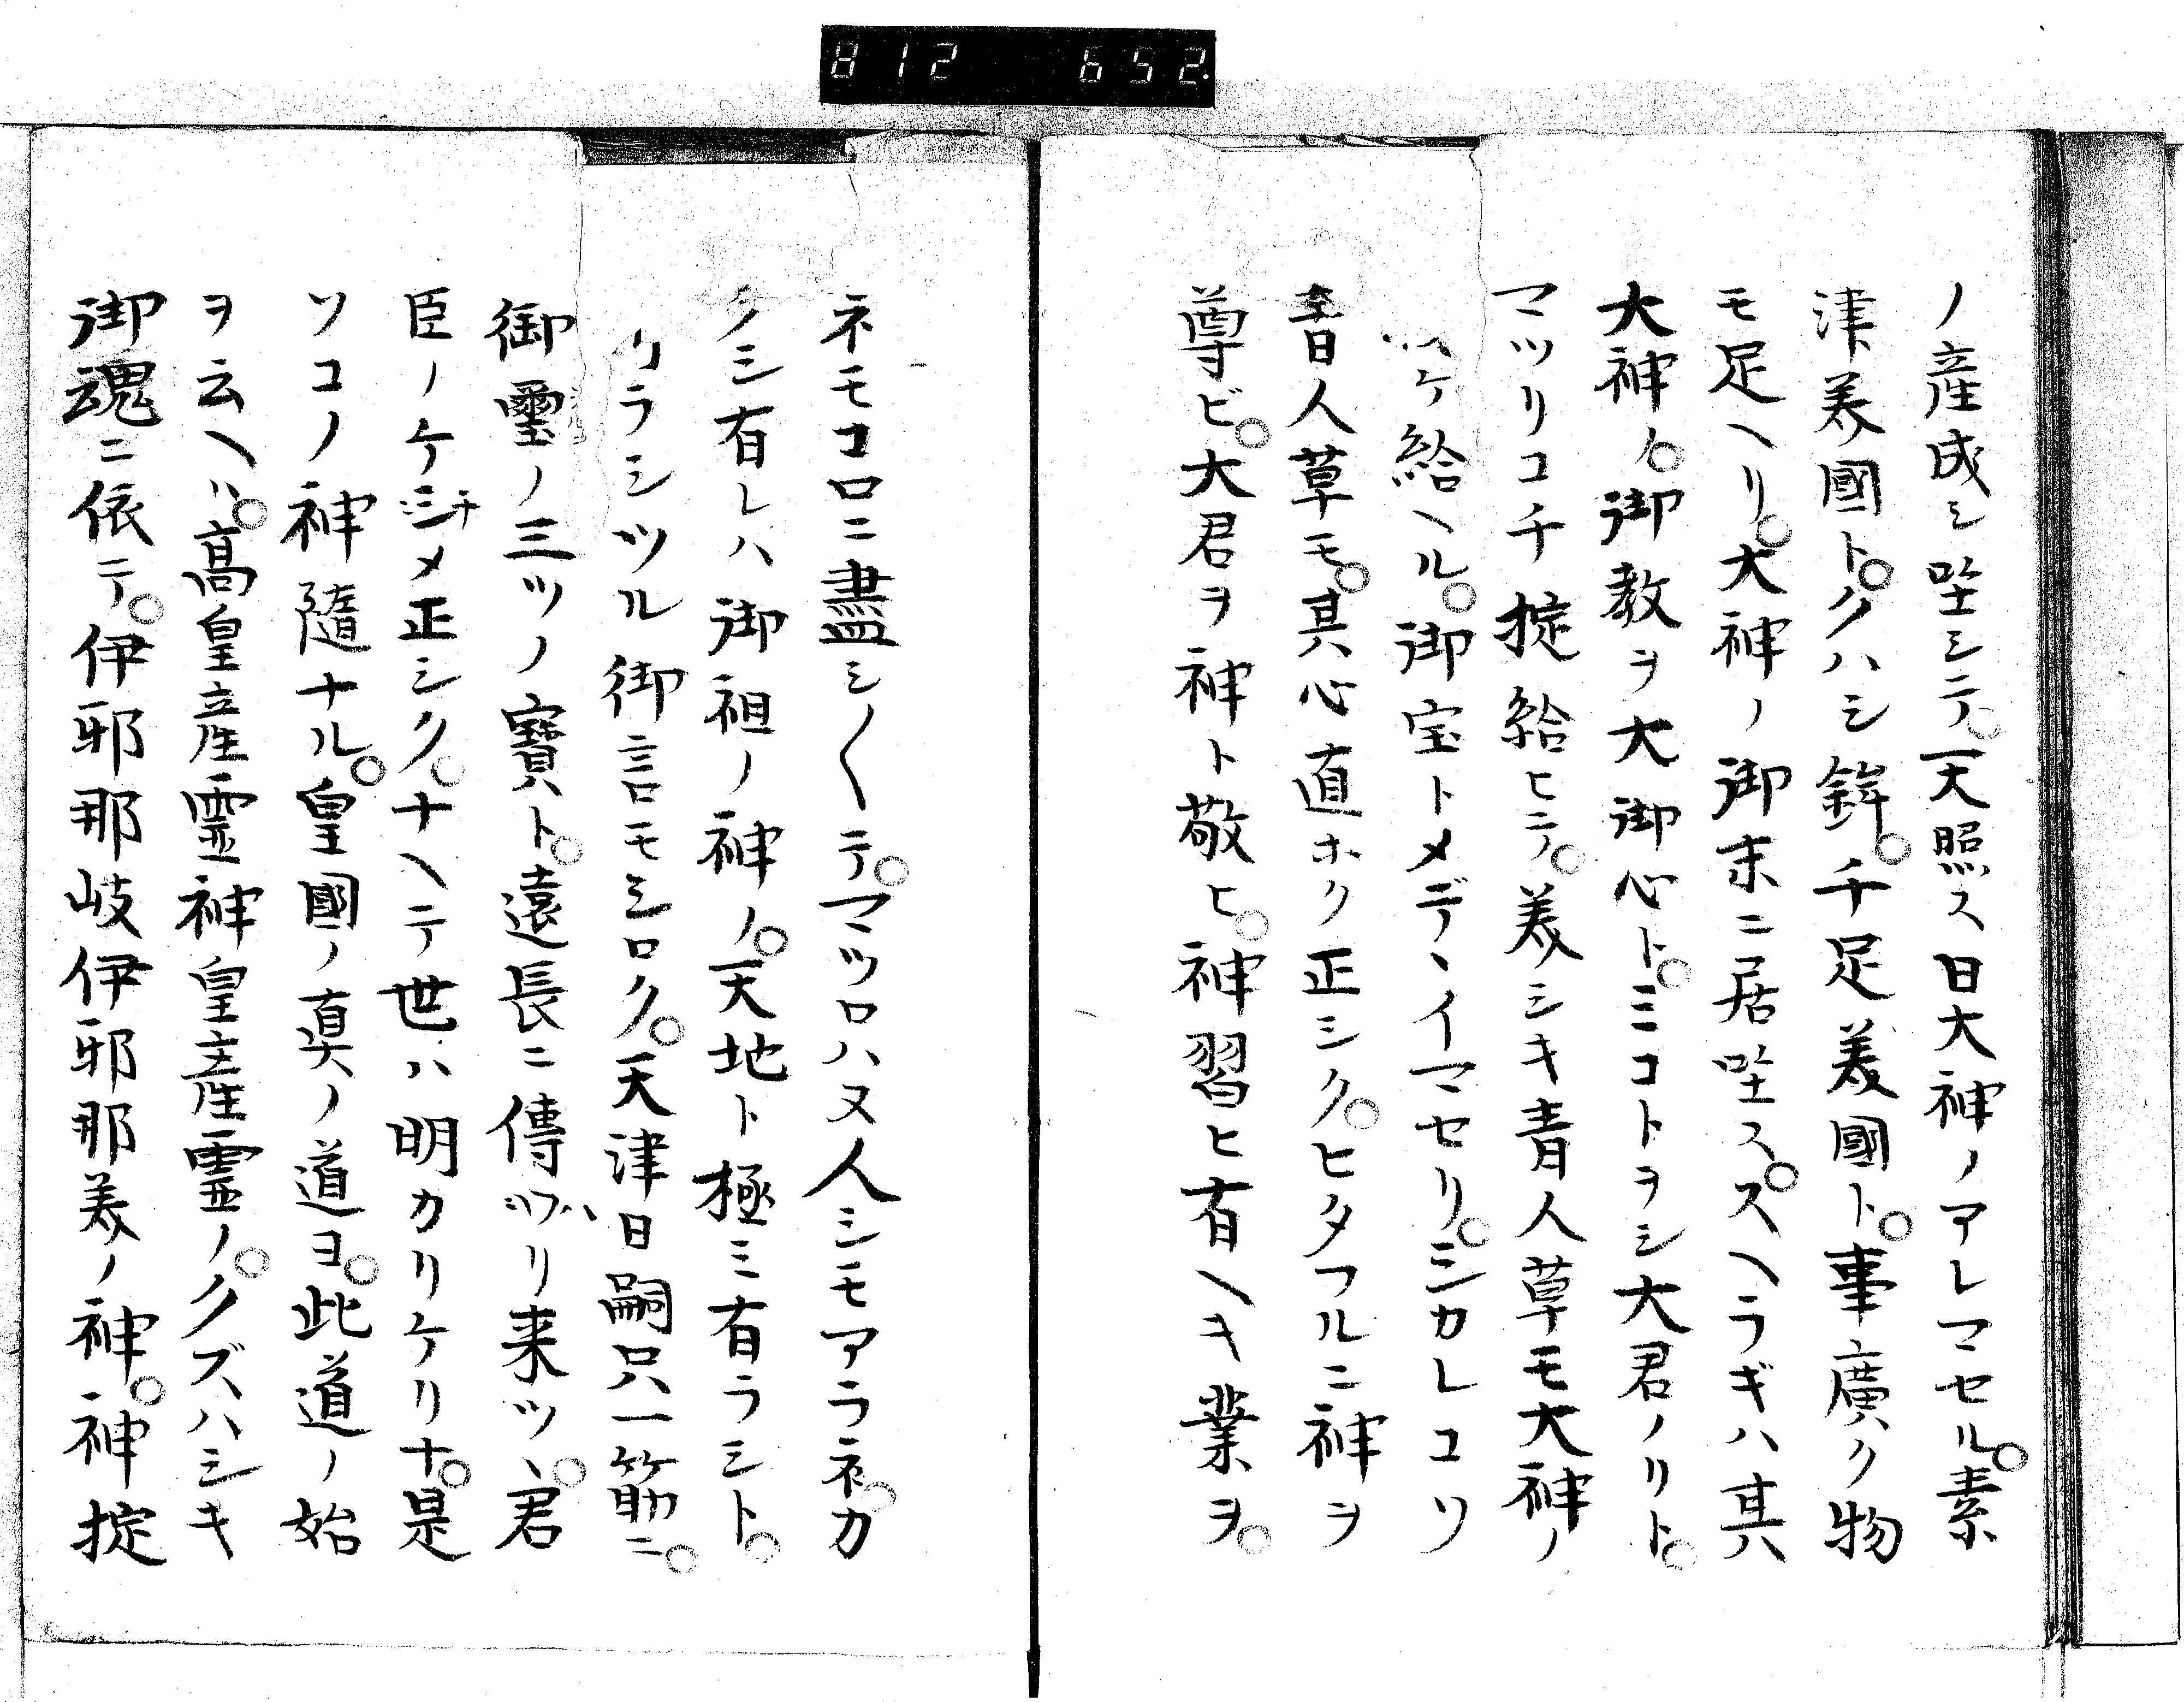 812 652.
ノ産成シ坐シテ○天照ス日大神ノアレマセル○素
津美國ト○クハシ鉾○千足美國ト○事廣ク物
モ足ヘリ○大神ノ御末ニ居坐ス○スヘラギハ其
大神ノ○御教ヲ大御心ト○ミコトヲシ大君ノリト○
マツリコチ掟給ヒテ○美シキ青人草モ大神ノ
ケ給ヘル○御宝トメデヽイマセリ○シカレコソ
青人草モ○其心直ホク正シク○ヒタフルニ神ヲ
尊ビ○大君ヲ神ト敬ヒ○神習ヒ有ヘキ業ヲ○
ネモコロニ盡シ〳〵テ○マツロハヌ人シモアラネ○カ
クシ有レハ御祖ノ神ノ○天地ト極ミ有ラシト○
カラシツル御言モシロク○天津日嗣只一筋ニ○
御璽ノ三ツノ寶ト○遠長ニ傳ツハリ来ツヽ○君
臣ノケチメ正シク○ナヘテ世ハ明カリケリナ○是
ソコノ神隨ナル○皇國ノ真ノ道ヨ○此道ノ始
ヲ云ヘハ○高皇産霊神皇産霊ノ○クズハシキ
御魂ニ依テ○伊邪那岐伊邪那美ノ神○神掟